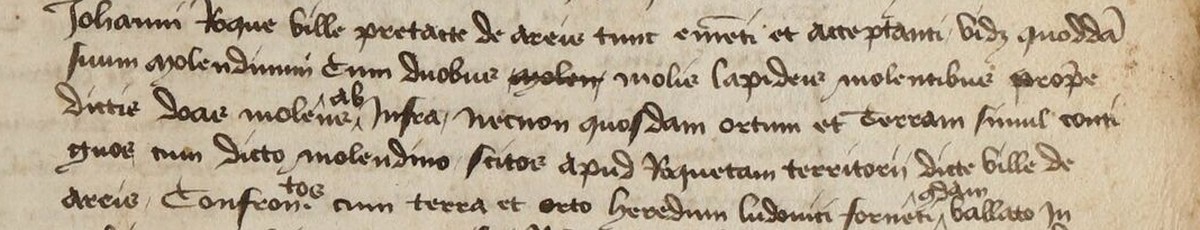 Johanni Roque ville pretacte de areis tunc emẽti et acceptanti vidz quoddã
suum molendinum Cum duobus molen molis lapideis molentibus prope
dictis doas molens ab Infra necnon quosdam ortum et terram simul conti
guos cum dicto molendino scitos apud Roquetam territorii dicte ville de
areis Confrontos cum terra et orto heredum ludovici forneti qdam vallato In